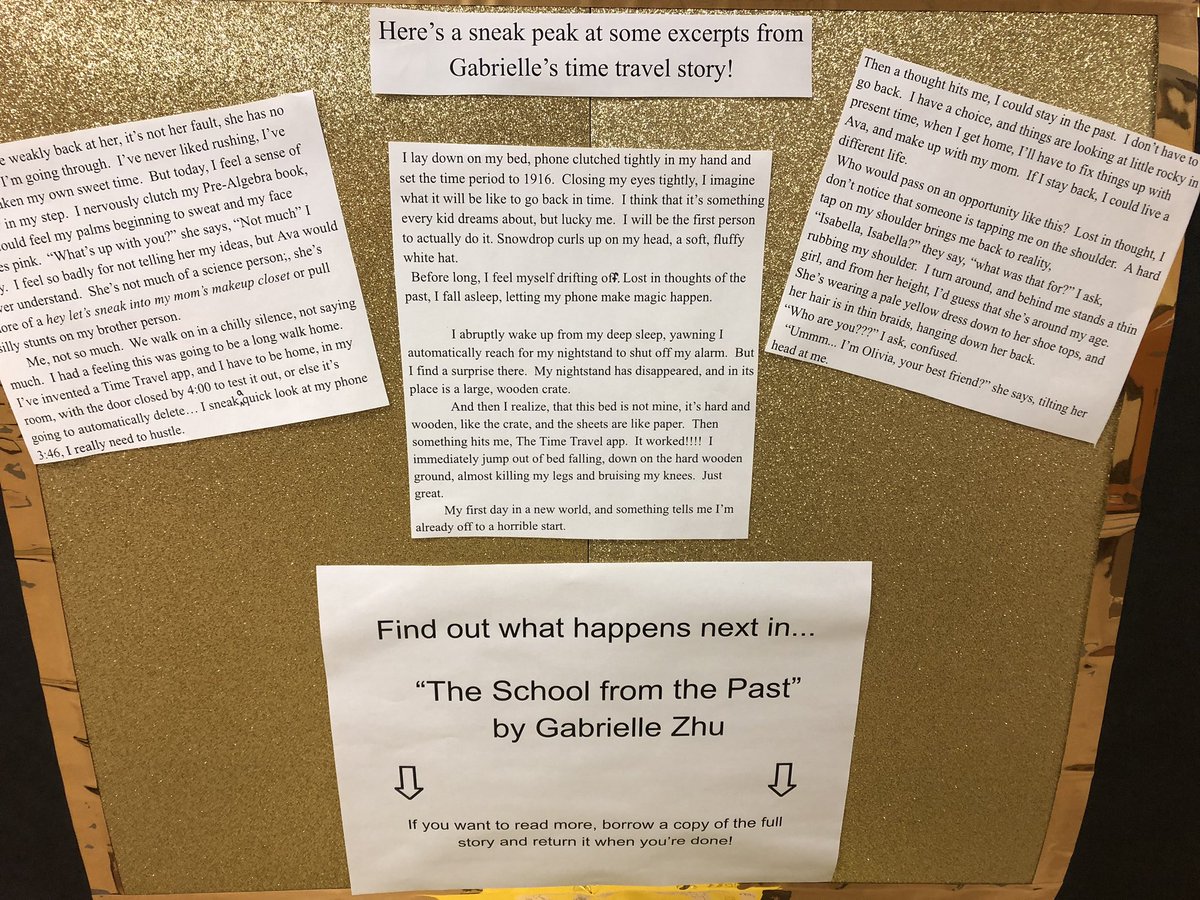 Here's a sneak peak at some excerpts from
Gabrielle's time travel story!
e weakly back at her, it's not her fault, she has no
I'm going through. I've never liked rushing, I've
aken my own sweet time. But today, I feel a sense of
in my step. I nervously clutch my Pre-Algebra book,
ould feel my palms beginning to sweat and my face
es pink. “What's up with you?” she says, “Not much” I
y. I feel so badly for not telling her my ideas, but Ava would
ver understand. She's not much of a science person;, she's
ore of a hey let's sneak into my mom's makeup closet or pull
silly stunts on my brother person.
Me, not so much. We walk on in a chilly silence, not saying
much. I had a feeling this was going to be a long walk home.
I've invented a Time Travel app, and I have to be home, in my
room, with the door closed by 4:00 to test it out, or else it's
going to automatically delete… I sneak a quick look at my phone
3:46, I really need to hustle.
I lay down on my bed, phone clutched tightly in my hand and
set the time period to 1916. Closing my eyes tightly, I imagine
what it will be like to go back in time. I think that it's something
every kid dreams about, but lucky me. I will be the first person
to actually do it. Snowdrop curls up on my head, a soft, fluffy
white hat.
Before long, I feel myself drifting off. Lost in thoughts of the
past, I fall asleep, letting my phone make magic happen.
I abruptly wake up from my deep sleep, yawning I
automatically reach for my nightstand to shut off my alarm. But
I find a surprise there. My nightstand has disappeared, and in its
place is a large, wooden crate.
And then I realize, that this bed is not mine, it's hard and
wooden, like the crate, and the sheets are like paper. Then
something hits me, The Time Travel app. It worked!!!! I
immediately jump out of bed falling, down on the hard wooden
ground, almost killing my legs and bruising my knees. Just
great.
My first day in a new world, and something tells me I'm
already off to a horrible start.
Then a thought hits me, I could stay in the past. I don't have to
go back. I have a choice, and things are looking at little rocky in
present time, when I get home, I'll have to fix things up with
Ava, and make up with my mom. If I stay back, I could live a
different life.
Who would pass on an opportunity like this? Lost in thought, I
don't notice that someone is tapping me on the shoulder. A hard
tap on my shoulder brings me back to reality,
“Isabella, Isabella?” they say, “what was that for?” I ask,
rubbing my shoulder. I turn around, and behind me stands a thin
girl, and from her height, I'd guess that she's around my age.
She's wearing a pale yellow dress down to her shoe tops, and
her hair is in thin braids, hanging down her back.
“Who are you???” I ask, confused.
“Ummm... I'm Olivia, your best friend?” she says, tilting her
head at me.
Find out what happens next in...
“The School from the Past”
by Gabrielle Zhu
If you want to read more, borrow a copy of the full
story and return it when you're done!